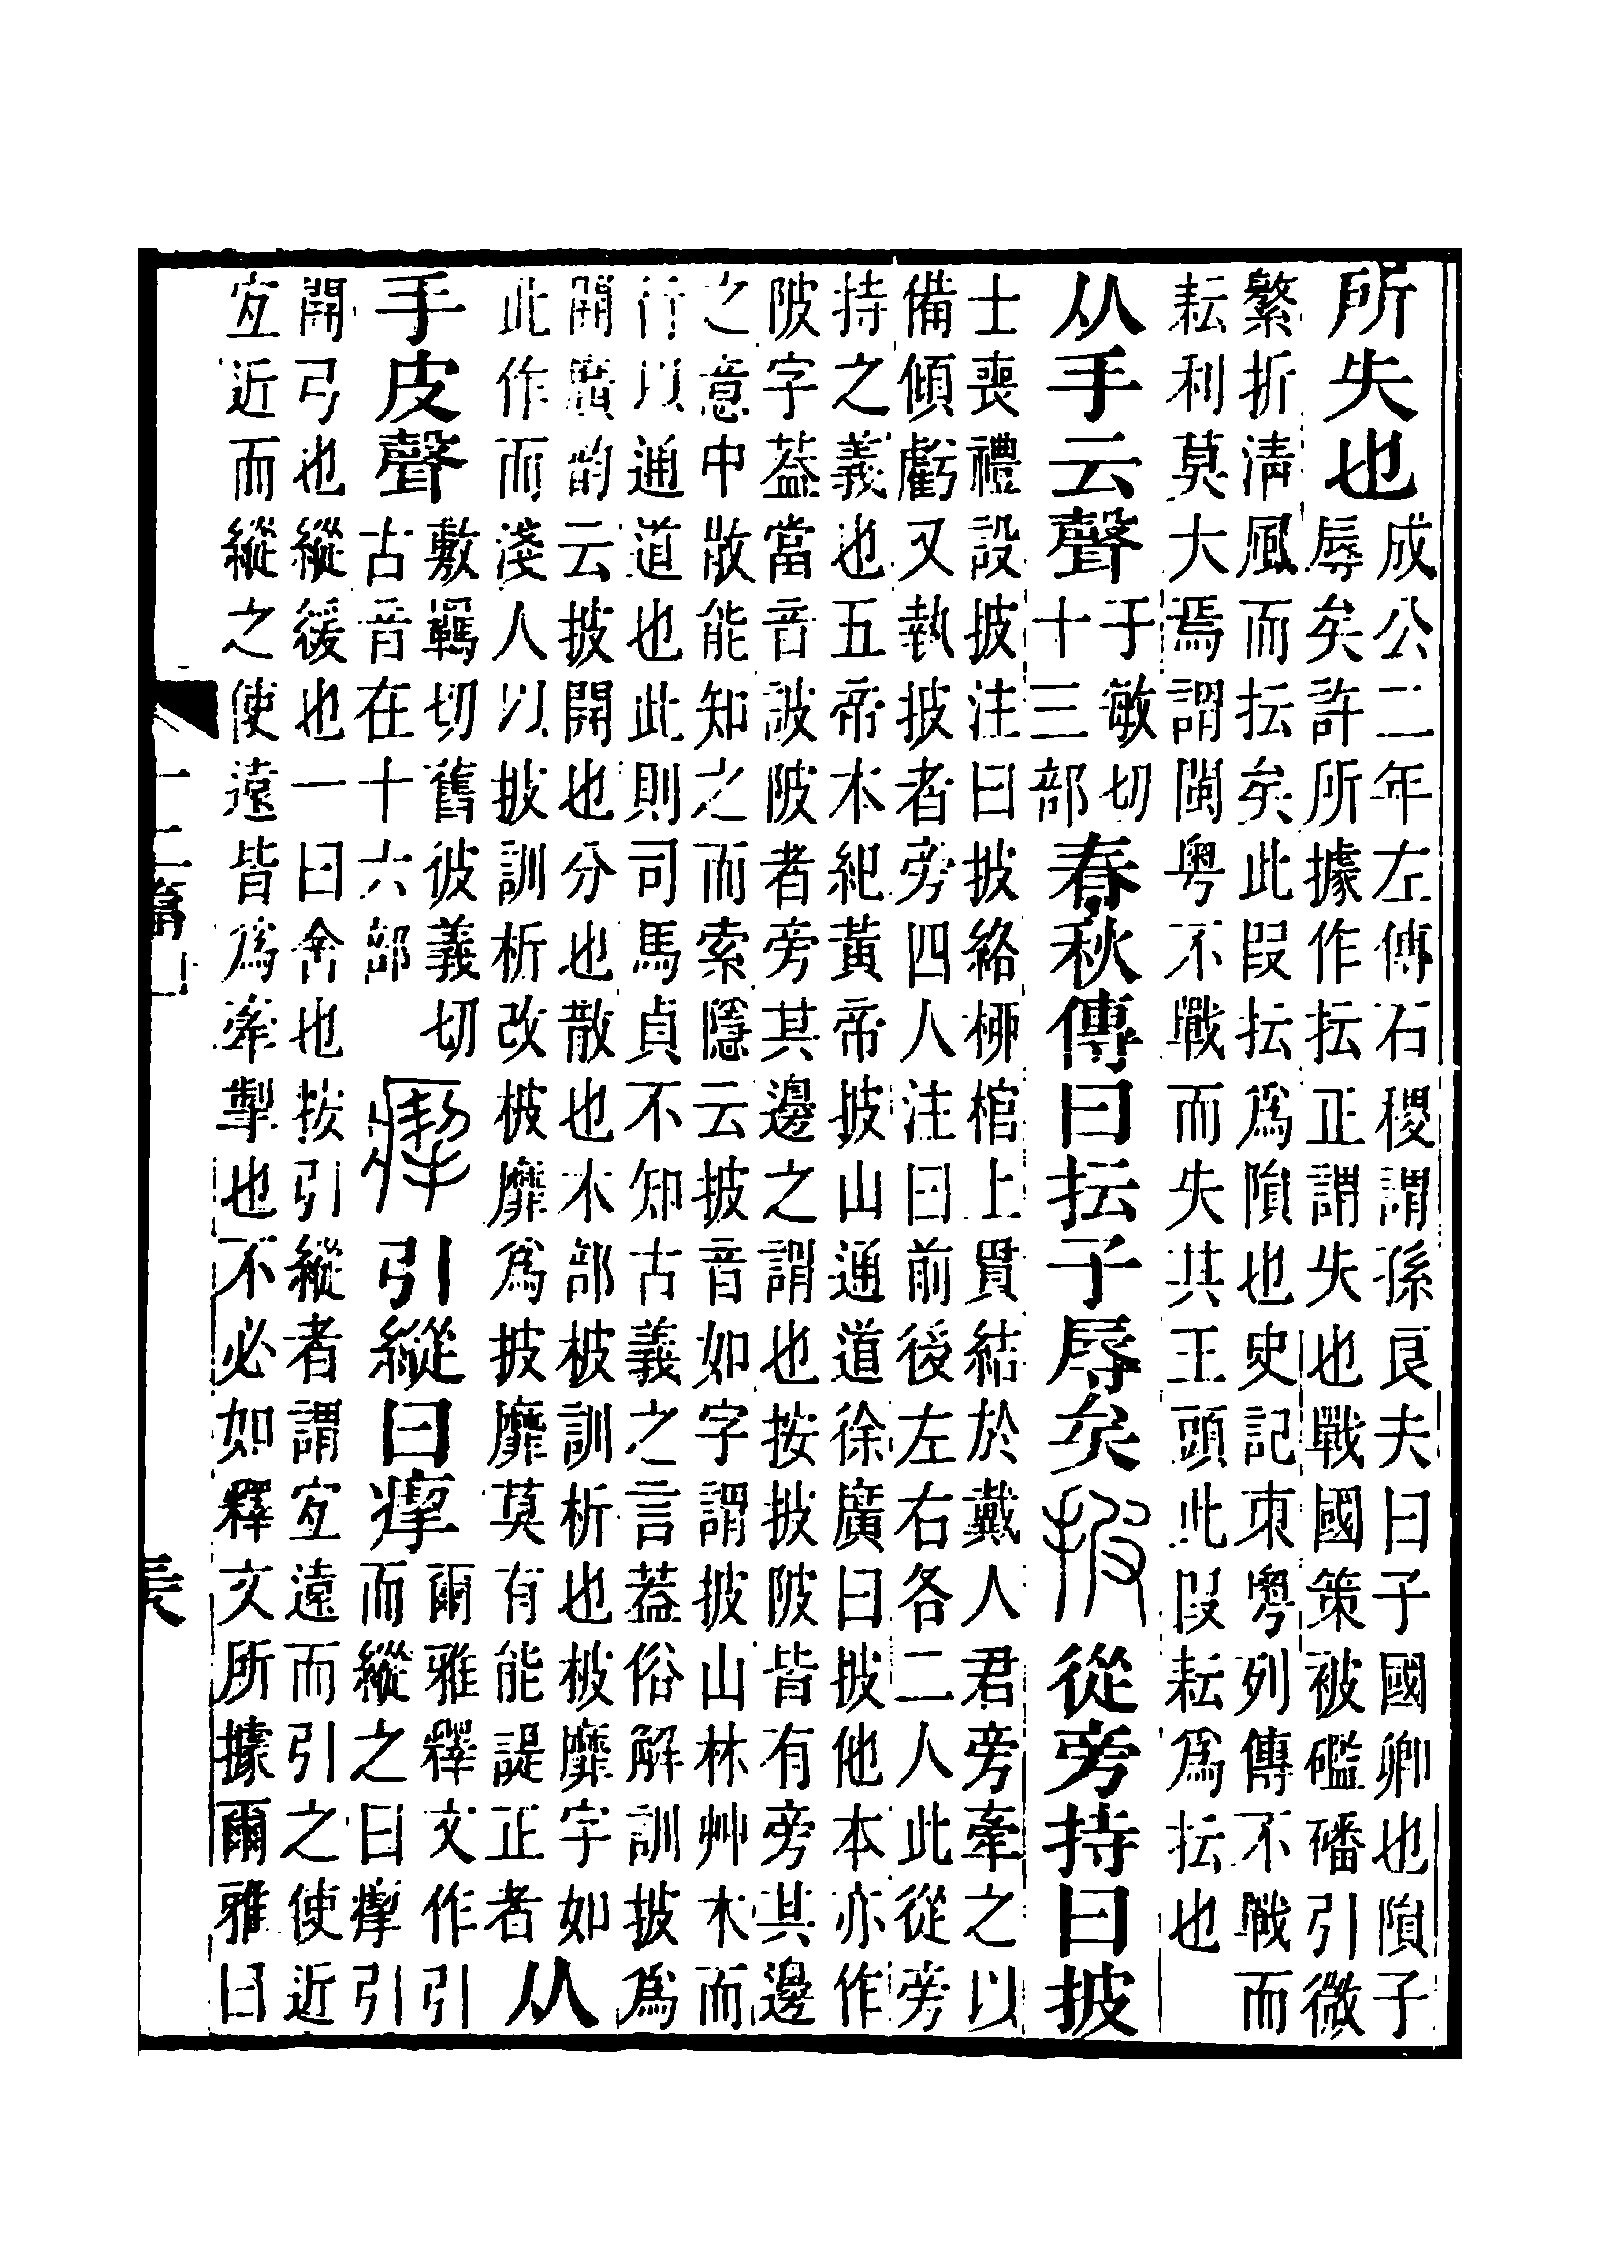 所失也
成公二年左傳石稷謂孫良夫曰子國卿也隕子
辱矣許所據作抎正謂失也戰國策被礛磻引微
繁折清風而抎矣此叚抎爲隕也史記東粵列傳不戰而
耘利莫大焉謂閩粵不戰而失其王頭此叚耘爲抎也
从手云聲
于敏切
十三部
春秋傳曰抎子辱矣披從旁持曰披
士喪禮設披注曰披絡柳棺上貫結於戴人君旁牽之以
備傾虧又執披者旁四人注曰前後左右各二人此從旁
持之義也五帝本紀黃帝披山通道徐廣曰披他本亦作
陂字葢當音詖陂者旁其邊之謂也按披陂皆有旁其邊
之意中散能知之而索隱云披音如字謂披山林艸木而
行以通道也此則司馬貞不知古義之言葢俗解訓披爲
開廣韵云披開也分也散也木部柀訓析也柀靡字如
此作而淺人以披訓析改柀靡爲披靡莫有能諟正者
从
手皮聲
敷羈切舊彼義切
古音在十六部
引縱曰瘛
爾雅釋文作引
而縱之曰瘛引
開弓也縱緩也一曰舍也按引縱者謂宐遠而引之使近
宐近而縱之使遠皆爲牽掣也不必如釋文所據爾雅曰
十二篇